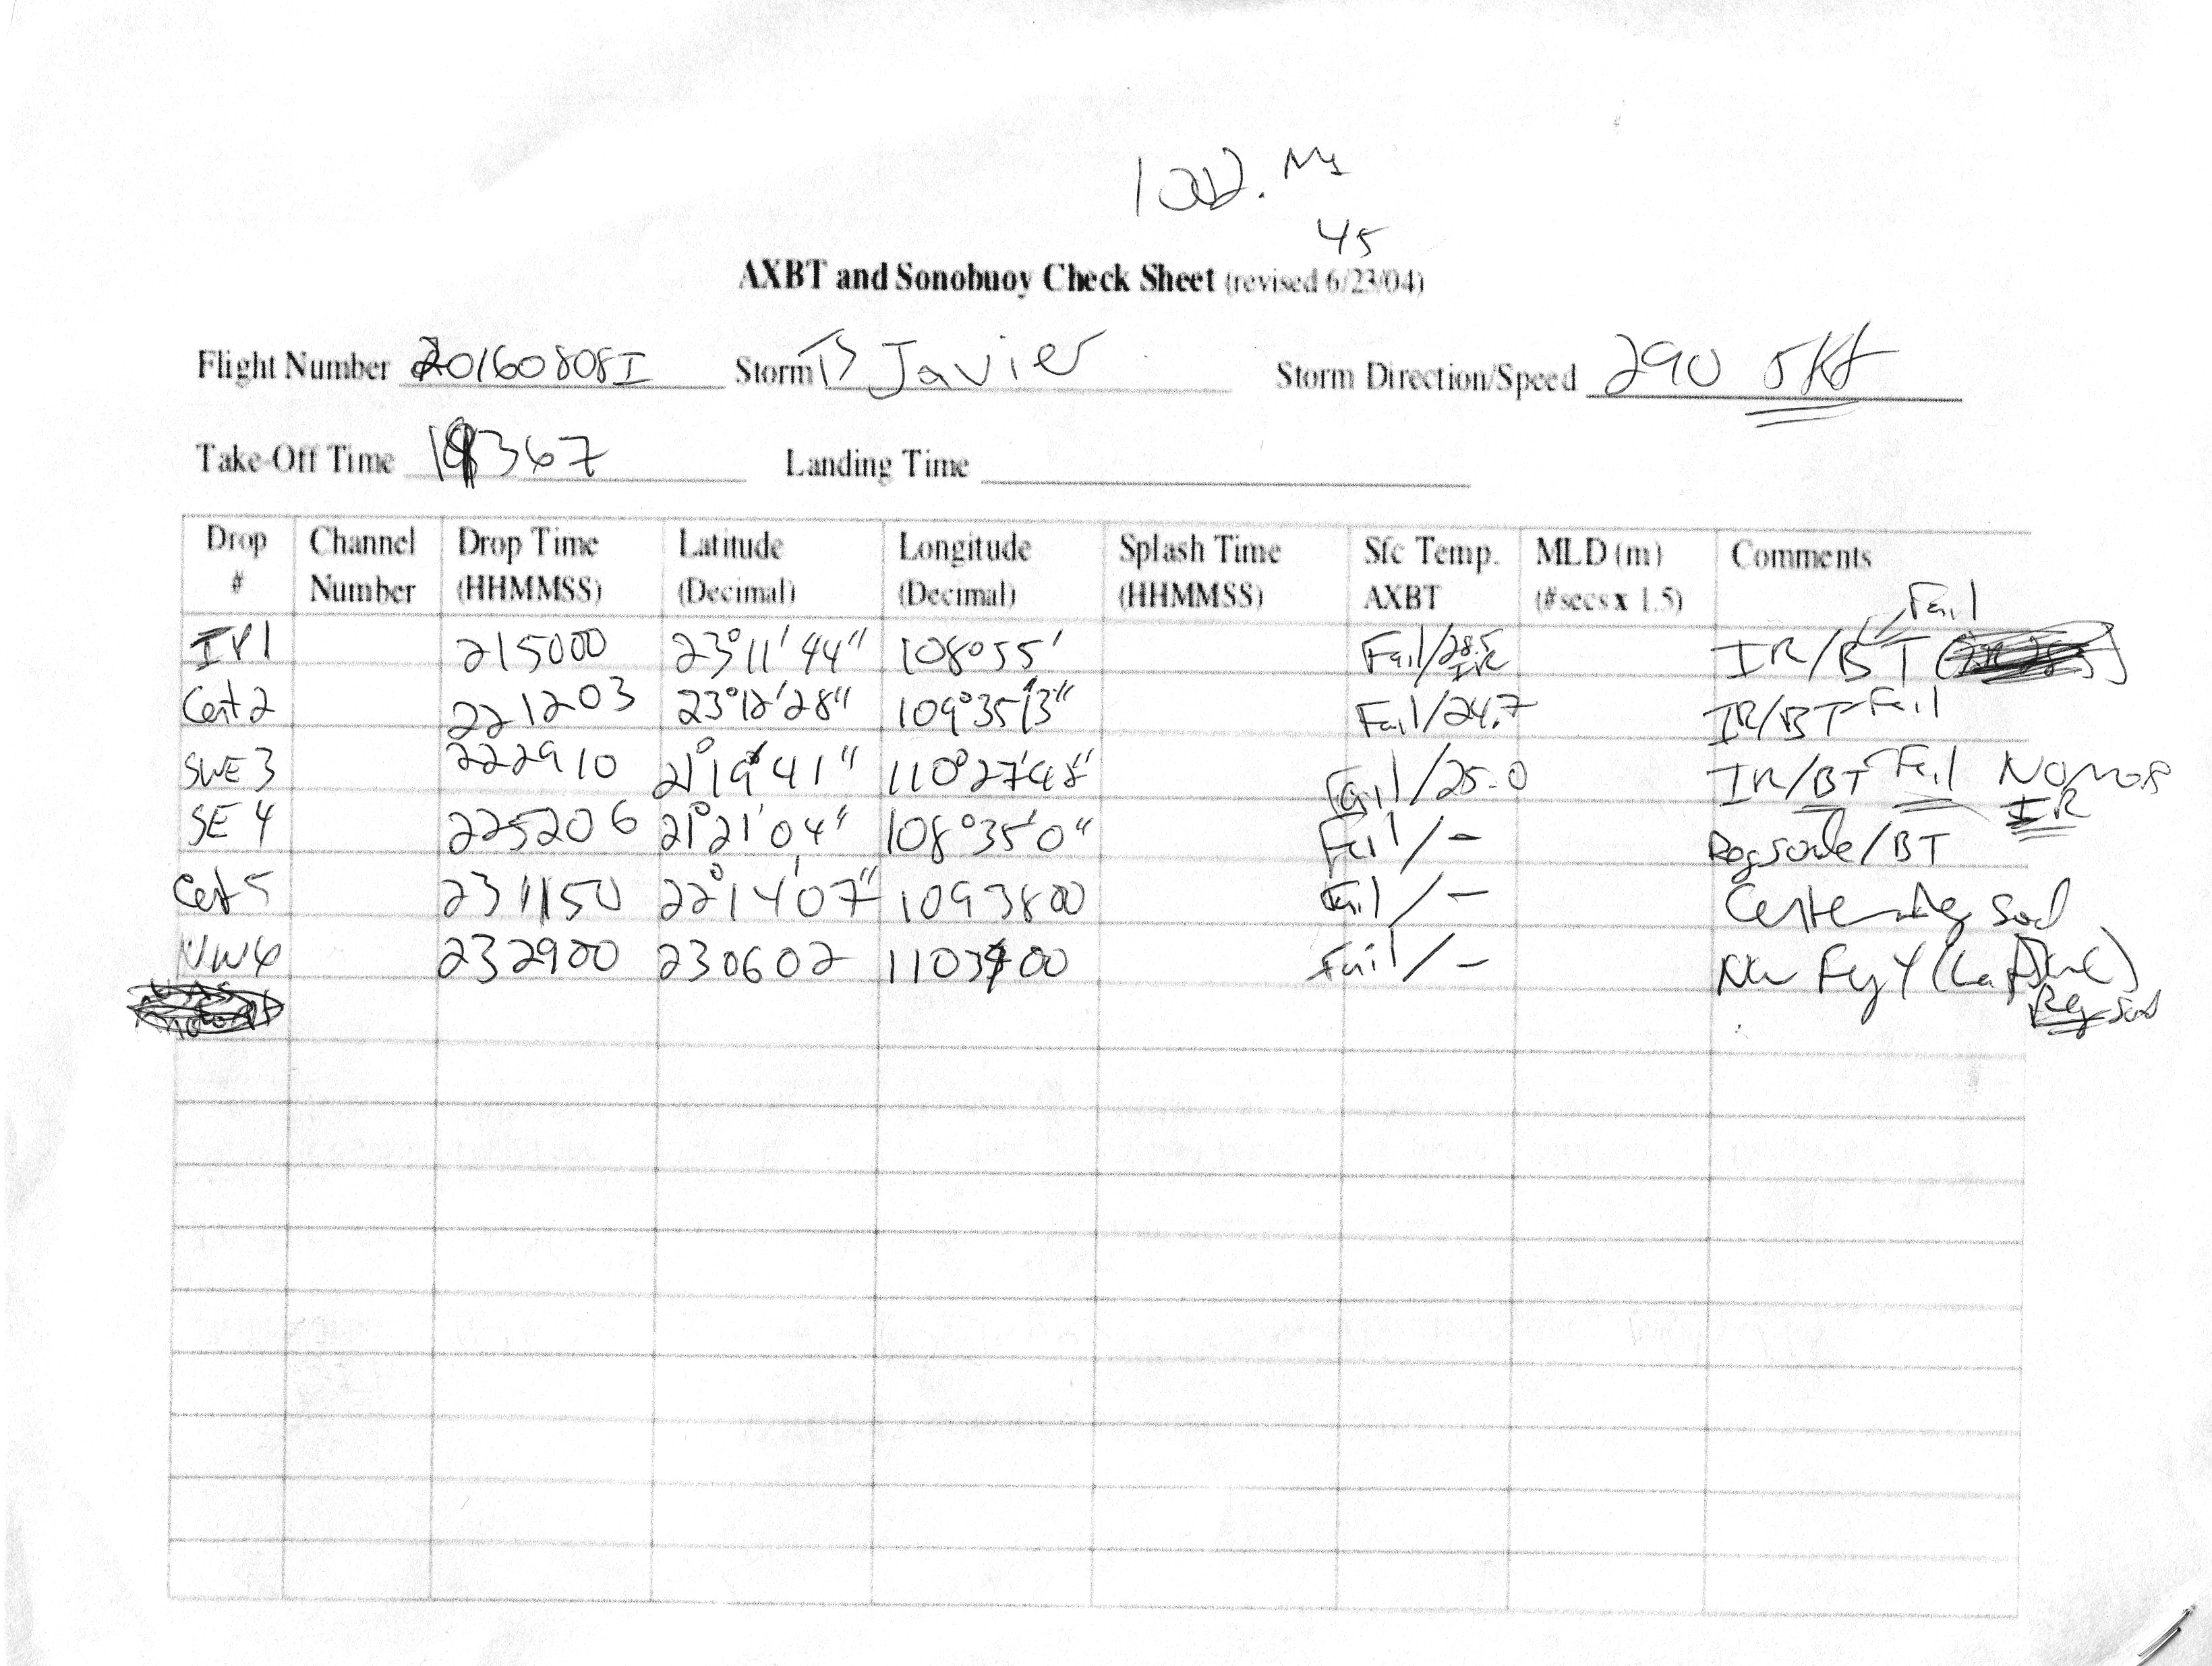 1002.
45
AXBT and Sonobuoy Check Sheet (revised 6/23/04)
Flight Number 20160808I Storm TS Javier Storm Direction/Speed 290 5kt
Take-Off Time Landing Time
Drop # Channel Number Drop Time (HHMMSS) Latitude (Decimal) Longitude (Decimal) Splash Time (HHMMSS) Sfc Temp. AXBT MLD (m) (#secs x 1.5) Comments
IP1 215000 23°11'44" 108°55' Fail/28.5 IR IR/BT Fail
Cent 2 221203 23°12'28" 109°35'13" Fail/24.7 IR/BT Fail
SWE 3 222910 21°19'41" 110°27'48" Fail/25.0 IR/BT Fail No more IR
SE 4 225206 21°21'04" 108°35'0" Fail/- Reg sonde/BT
Cent 5 231150 22°14'07" 1093800 Fail/- Center Reg
NW6 232900 230602 Fail/- NW Reg